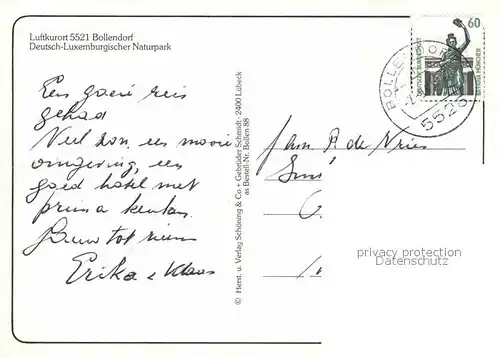 Luftkurort 5521 Bollendorf
Deutsch-Luxemburgischer Naturpark
60
DEUTSCHE BUNDESPOST
BAVARIA MÜNCHEN
BOLLENDORF
5526
Een goeie reis
gehad
Veel zon, een mooie
omgeving, een
goed hotel met
prima keuken.
tot ziens
Erika & Klaas
© Herst. u. Verlag Schöning & Co + Gebrüder Schmidt, 2400 Lübeck
as Bestell-Nr. Bollen 88
Fam. P. de Vries
privacy protection
Datenschutz